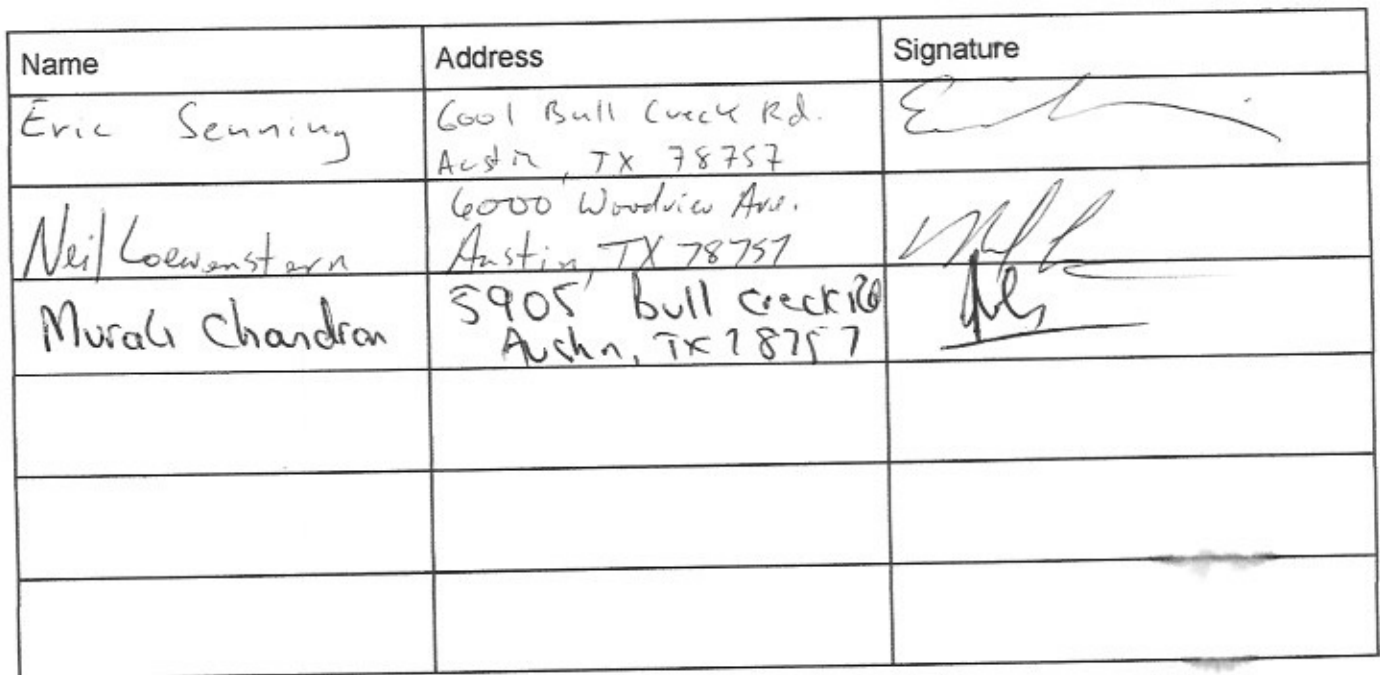 Name Address Signature
Eric Senning
6001 Bull Creek Rd.
Austin, TX 78757
Neil Loewenstern
6000 Woodview Ave.
Austin, TX 78757
Murali Chandran
5905 Bull Creek Rd
Austin, TX 78757